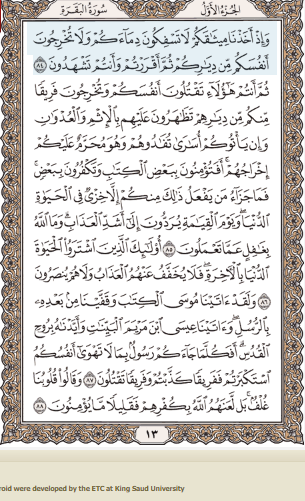 الجزء الأول
سورة البقرة
وَإِذْ أَخَذْنَا مِيثَاقَكُمْ لَا تَسْفِكُونَ دِمَاءَكُمْ وَلَا تُخْرِجُونَ
أَنفُسَكُم مِّن دِيَارِكُمْ ثُمَّ أَقْرَرْتُمْ وَأَنتُمْ تَشْهَدُونَ ٨٤
ثُمَّ أَنتُمْ هَٰؤُلَاءِ تَقْتُلُونَ أَنفُسَكُمْ وَتُخْرِجُونَ فَرِيقًا
مِّنكُم مِّن دِيَارِهِمْ تَظَاهَرُونَ عَلَيْهِم بِالْإِثْمِ وَالْعُدْوَانِ
وَإِن يَأْتُوكُمْ أُسَارَىٰ تُفَادُوهُمْ وَهُوَ مُحَرَّمٌ عَلَيْكُمْ
إِخْرَاجُهُمْ ۚ أَفَتُؤْمِنُونَ بِبَعْضِ الْكِتَابِ وَتَكْفُرُونَ بِبَعْضٍ ۚ
فَمَا جَزَاءُ مَن يَفْعَلُ ذَٰلِكَ مِنكُمْ إِلَّا خِزْيٌ فِي الْحَيَوٰةِ
الدُّنْيَا ۖ وَيَوْمَ الْقِيَامَةِ يُرَدُّونَ إِلَىٰ أَشَدِّ الْعَذَابِ ۗ وَمَا اللَّهُ
بِغَافِلٍ عَمَّا تَعْمَلُونَ ٨٥ أُولَٰئِكَ الَّذِينَ اشْتَرَوُا الْحَيَوٰةَ
الدُّنْيَا بِالْآخِرَةِ ۖ فَلَا يُخَفَّفُ عَنْهُمُ الْعَذَابُ وَلَا هُمْ يُنصَرُونَ
٨٦ وَلَقَدْ آتَيْنَا مُوسَى الْكِتَابَ وَقَفَّيْنَا مِن بَعْدِهِ
بِالرُّسُلِ ۖ وَآتَيْنَا عِيسَى ابْنَ مَرْيَمَ الْبَيِّنَاتِ وَأَيَّدْنَاهُ بِرُوحِ
الْقُدُسِ ۗ أَفَكُلَّمَا جَاءَكُمْ رَسُولٌ بِمَا لَا تَهْوَىٰ أَنفُسُكُمُ
اسْتَكْبَرْتُمْ فَفَرِيقًا كَذَّبْتُمْ وَفَرِيقًا تَقْتُلُونَ ٨٧ وَقَالُوا قُلُوبُنَا
غُلْفٌ ۚ بَل لَّعَنَهُمُ اللَّهُ بِكُفْرِهِمْ فَقَلِيلًا مَّا يُؤْمِنُونَ ٨٨
١٣
roid were developed by the ETC at King Saud University